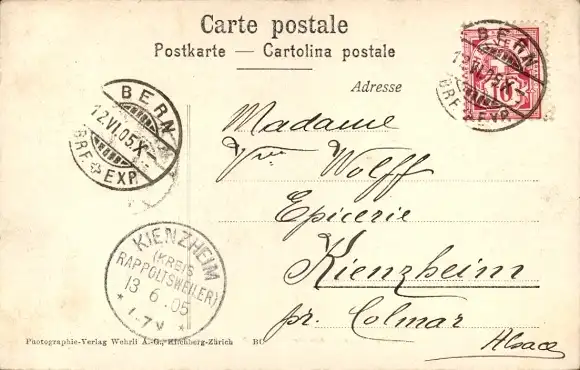 Carte postale
Postkarte — Cartolina postale
Adresse
BERN
12.VI.05.X-
BRF. EXP.
BERN
12.VI.05.X-
BRF. EXP.
10
Madame
Vve Wolff
Epicerie
Kienzheim
pr. Colmar
Alsace
KIENZHEIM
(KREIS
RAPPOLTSWEILER)
13 6 05
* *
Photographie-Verlag Wehrli A.-G., Kilchberg-Zürich